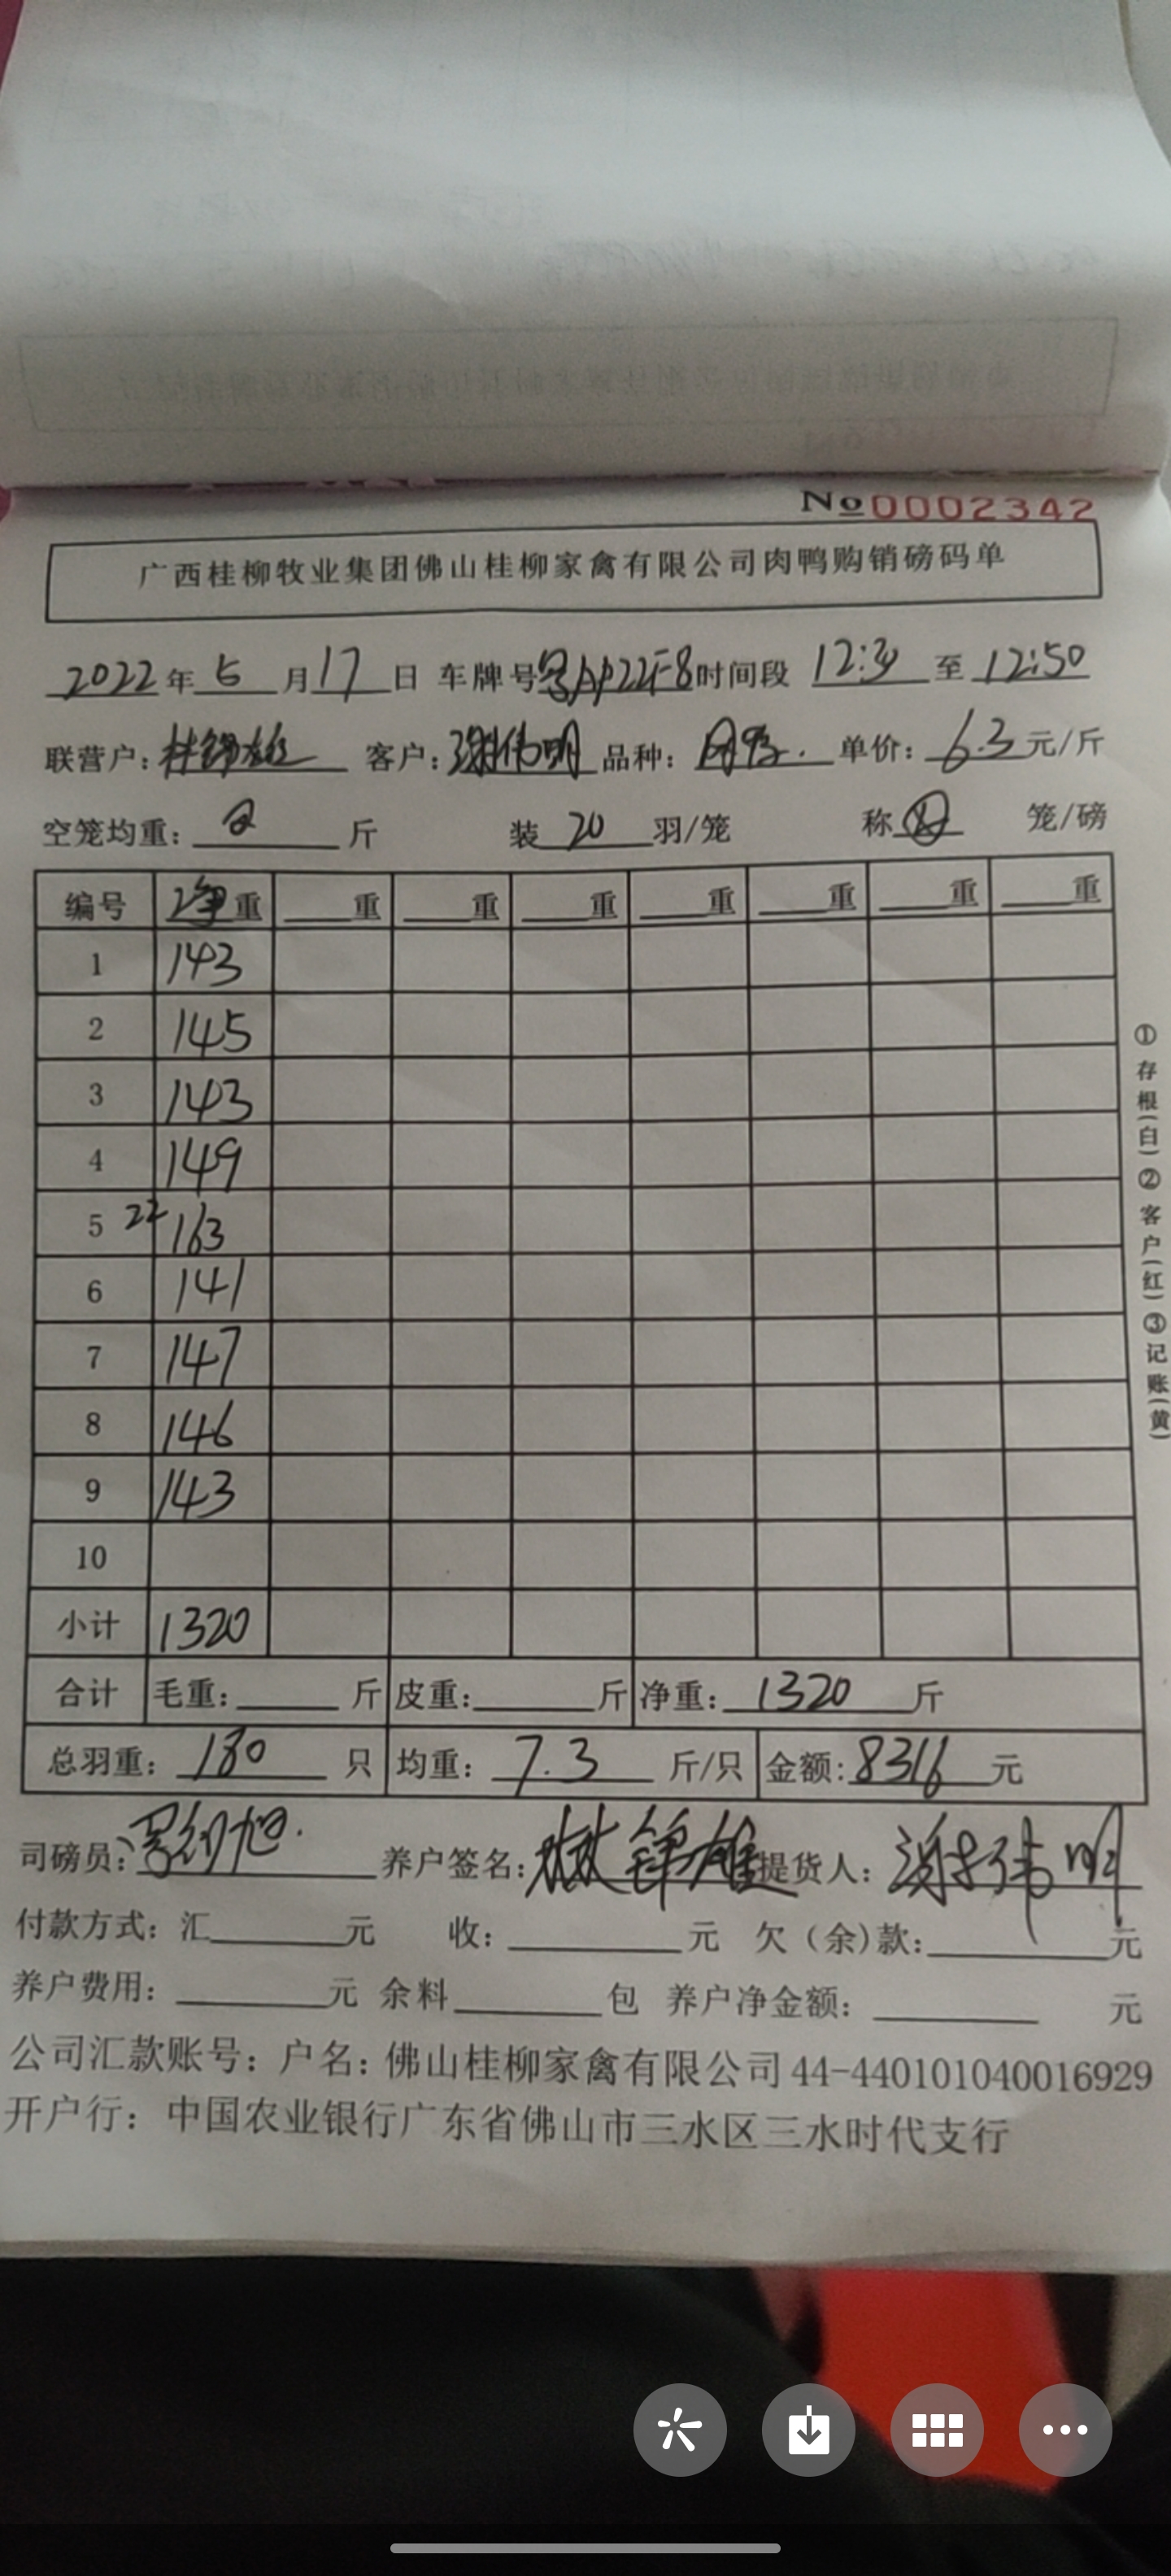 No 0002342
广西桂柳牧业集团佛山桂柳家禽有限公司肉鸭购销磅码单
2022年5月17日 车牌号 时间段 12:30 至 12:50
联营户: 客户:谢伟明 品种: 单价: 6.3 元/斤
空笼均重: 斤 装 20 羽/笼 称 笼/磅
编号 净重 重 重 重 重 重 重 重
1 143
2 145
3 143
4 149
5 22 163
6 141
7 147
8 146
9 143
10
小计 1320
合计 毛重: 斤 皮重: 斤 净重: 1320 斤
总羽重: 180 只 均重: 7.3 斤/只 金额: 8316 元
司磅员: 养户签名: 提货人: 谢伟明
付款方式: 汇 元 收: 元 欠(余)款: 元
养户费用: 元 余料 包 养户净金额: 元
公司汇款账号: 户名: 佛山桂柳家禽有限公司 44-440101040016929
开户行: 中国农业银行广东省佛山市三水区三水时代支行
①存根(白)②客户(红)③记账(黄)